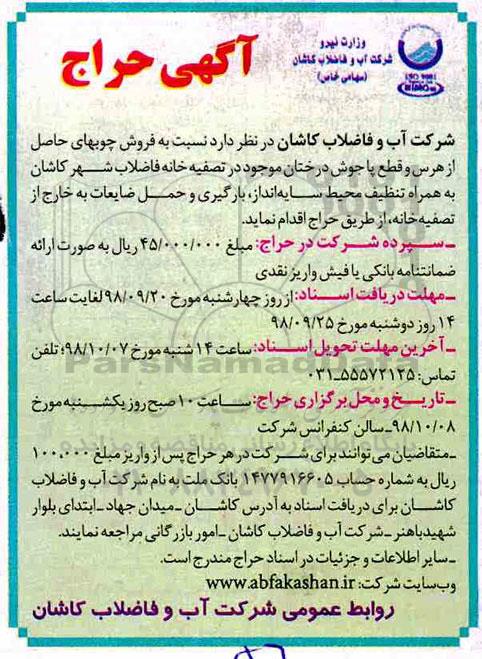 وزارت نیرو
شرکت آب و فاضلاب کاشان
(سهامی خاص)
ISO 9001
آگهی حراج
شرکت آب و فاضلاب کاشان در نظر دارد نسبت به فروش چوبهای حاصل
از هرس و قطع پاجوش درختان موجود در تصفیه خانه فاضلاب شهر کاشان
به همراه تنظیف محیط سایه‌انداز، بارگیری و حمل ضایعات به خارج از
تصفیه‌خانه، از طریق حراج اقدام نماید.
ـ سپرده شرکت در حراج: مبلغ ۴۵/۰۰۰/۰۰۰ ریال به صورت ارائه
ضمانتنامه بانکی یا فیش واریز نقدی
ـ مهلت دریافت اسناد: از روز چهارشنبه مورخ ۹۸/۰۹/۲۰ لغایت ساعت
۱۴ روز دوشنبه مورخ ۹۸/۰۹/۲۵
ـ آخرین مهلت تحویل اسناد: ساعت ۱۴ شنبه مورخ ۹۸/۱۰/۰۷؛ تلفن
تماس: ۵۵۵۷۲۱۲۵-۰۳۱
ـ تاریخ و محل برگزاری حراج: ساعت ۱۰ صبح روز یکشنبه مورخ
۹۸/۱۰/۰۸ـ سالن کنفرانس شرکت
ـ متقاضیان می‌توانند برای شرکت در هر حراج پس از واریز مبلغ ۱۰۰.۰۰۰
ریال به شماره حساب ۱۴۷۷۹۱۶۶۰۵ بانک ملت به نام شرکت آب و فاضلاب
کاشان برای دریافت اسناد به آدرس کاشان ـ میدان جهاد ـ ابتدای بلوار
شهید باهنر ـ شرکت آب و فاضلاب کاشان ـ امور بازرگانی مراجعه نمایند.
ـ سایر اطلاعات و جزئیات در اسناد حراج مندرج است.
وب‌سایت شرکت: www.abfakashan.ir
روابط عمومی شرکت آب و فاضلاب کاشان